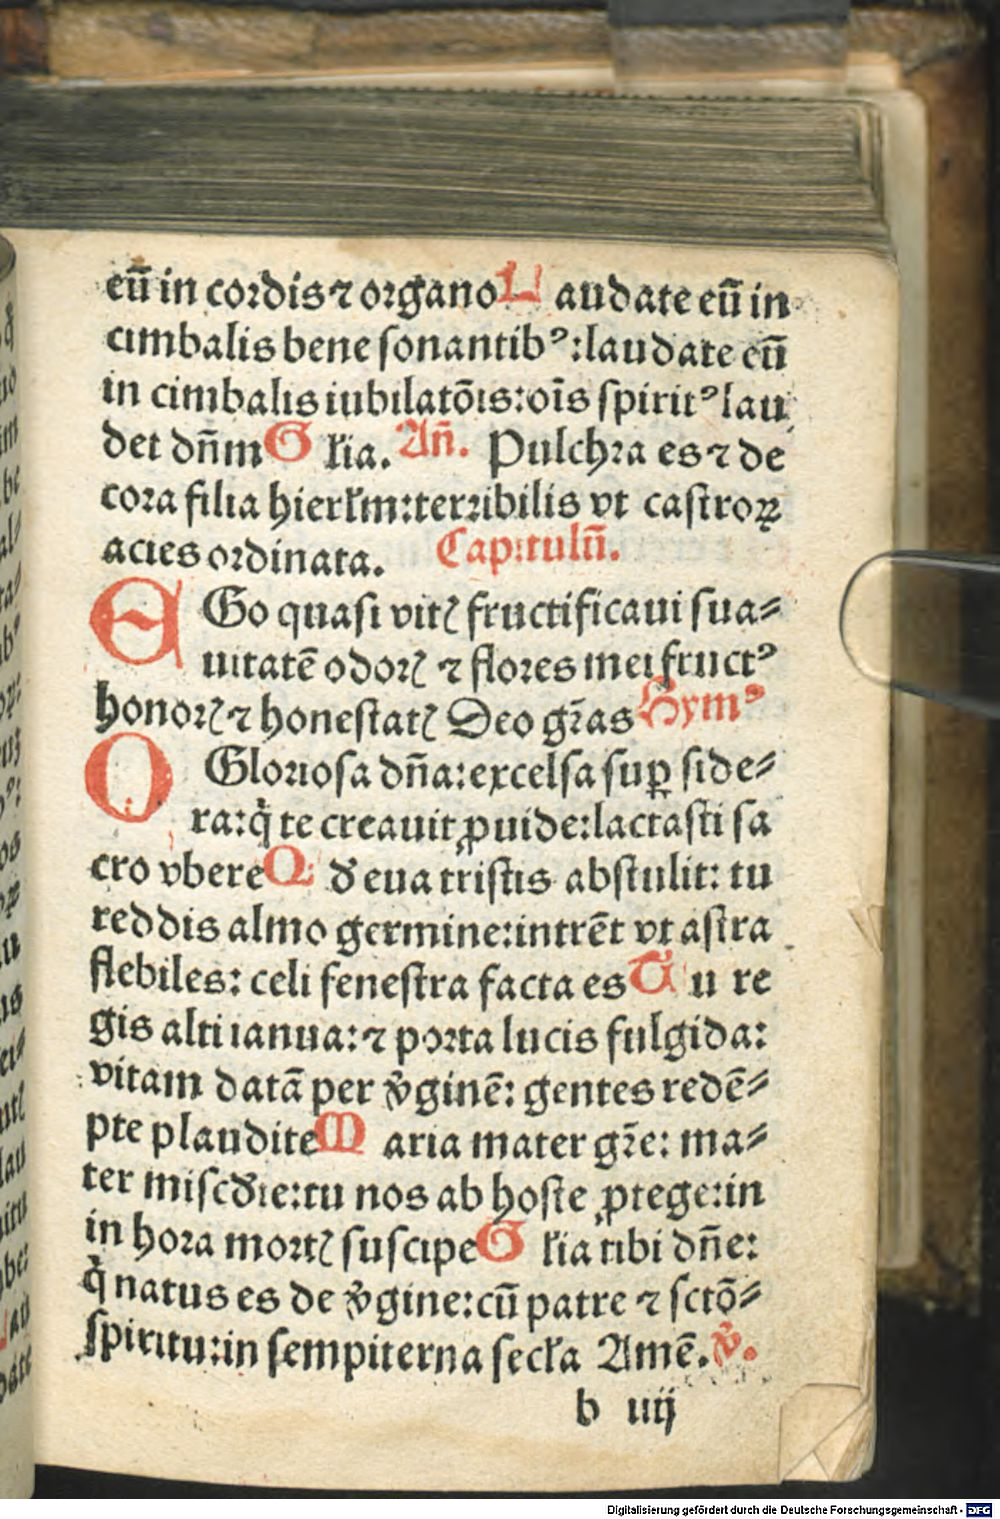 eū in cordis ⁊ organo L audate eū in
cimbalis bene sonantibꝰ: laudate eū
in cimbalis iubilatōis: oīs spiritꝰ lau
det dn̄m G lꝛia. An̄. Pulchꝛa es ⁊ de
coꝛa filia hierlꝛm: terꝛibilis vt castroꝝ
acies oꝛdinata. Capitulū.
E Go quasi vitꝭ fructificaui sua⸗
uitatē odoꝛꝭ ⁊ floꝛes mei fructꝰ
honoꝛꝭ ⁊ honestatꝭ Deo gr̄as Hymꝰ
O Gloꝛiosa dn̄a: excelsa suꝑ side⸗
ra: q̇ te creauit ꝓuide: lactasti sa
cro vbere Q đ eua tristis abstulit: tu
reddis almo germine: intrēt vt astra
flebiles: celi fenestra facta es T u re
gis alti ianua: ⁊ poꝛta lucis fulgida:
vitam datā per v̓ginē: gentes redē⸗
pte plaudite M aria mater gr̄e: ma⸗
ter misc̄đie: tu nos ab hoste ꝓtege: in
in hoꝛa moꝛtꝭ suscipe G lꝛia tibi dn̄e:
q̇ natus es de v̓gine: cū patre ⁊ sctō⸗
spiritu: in sempiterna seclꝛa Amē. v̓.
b iiij
Digitalisierung gefördert durch die Deutsche Forschungsgemeinschaft - DFG